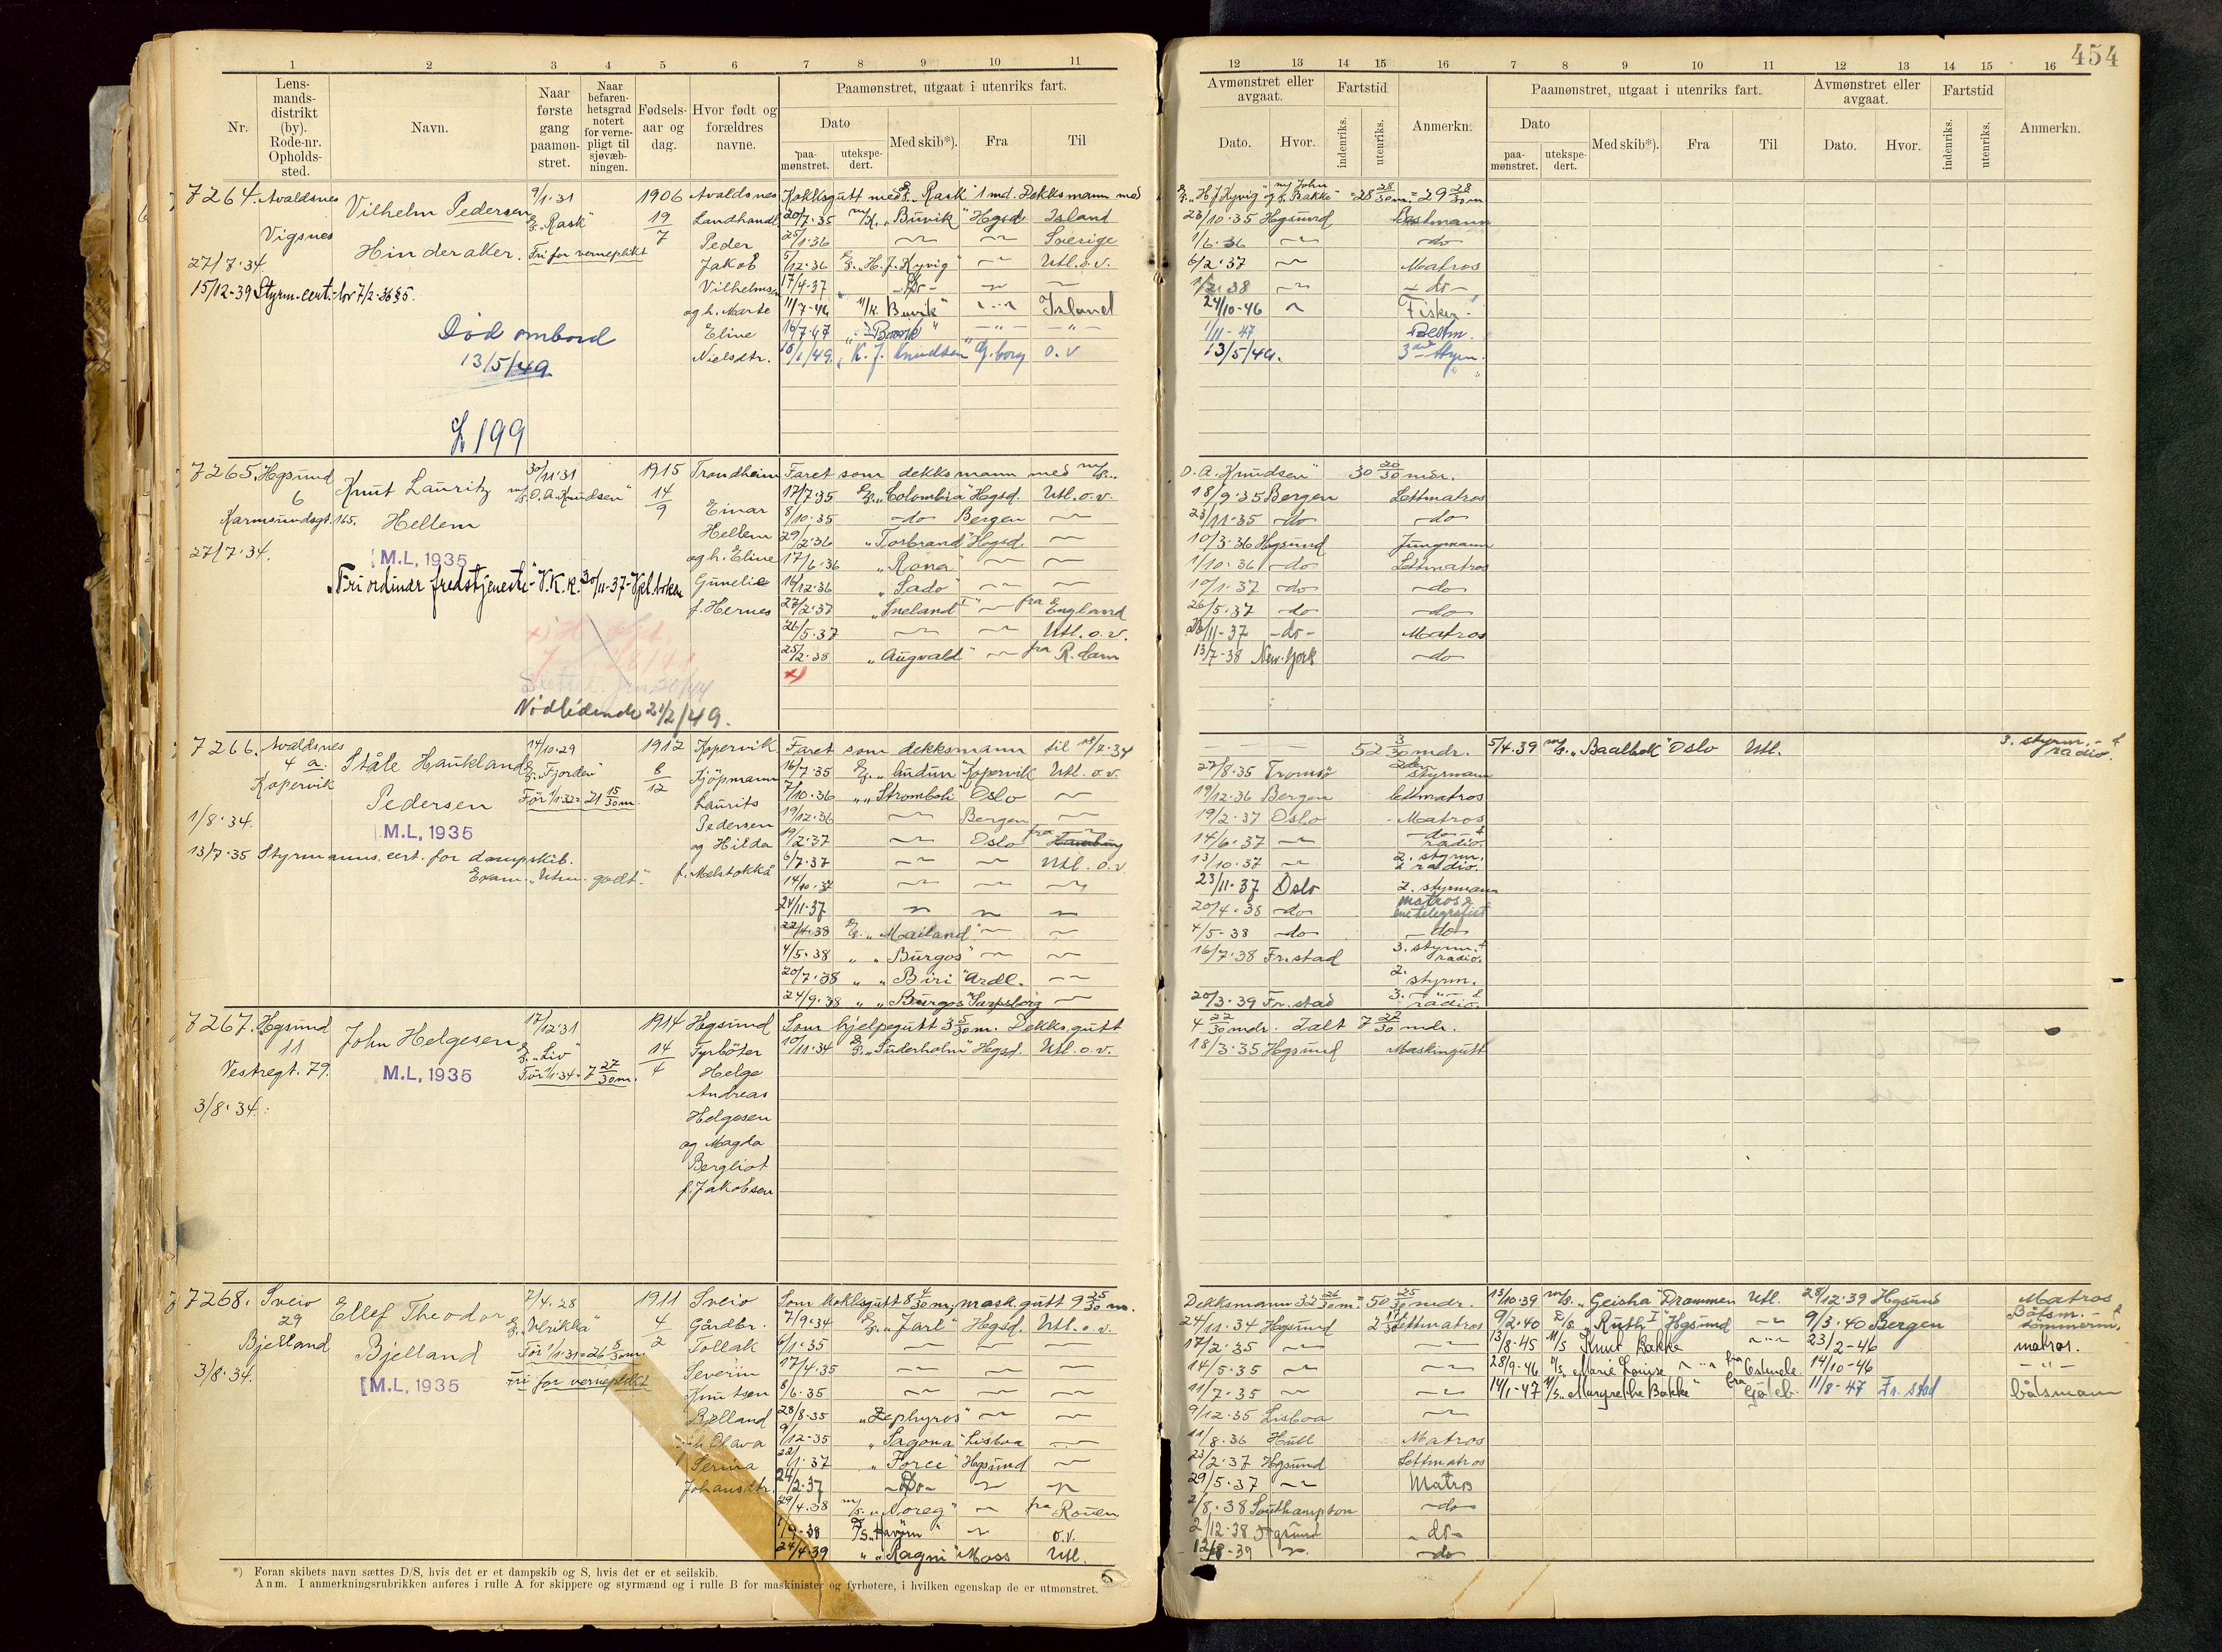 454
1 2 3 4 5 6 7 8 9 10 11
12 13 14 15 16 7 8 9 10 11 12 13 14 15 16
Nr.
Lens-
mands-
distrikt
(by).
Rode-nr.
Opholds-
sted.
Navn.
Naar
første
gang
paamøn-
stret.
Naar
befaren-
hetsgrad
notert
for verne-
pligt til
sjøvæb-
ningen.
Fødsels-
aar og
dag.
Hvor født og
forældres
navne.
Paamønstret, utgaat i utenriks fart.
Dato
paa-
mønstret.
utekspe-
dert.
Med skib*).
Fra
Til
Avmønstret eller
avgaat.
Dato.
Hvor.
Fartstid
indenriks.
utenriks.
Anmerkn.
Paamønstret, utgaat i utenriks fart.
Dato
paa-
mønstret.
utekspe-
dert.
Med skib*).
Fra
Til
Avmønstret eller
avgaat.
Dato.
Hvor.
Fartstid
indenriks.
utenriks.
Anmerkn.
7264. Avaldsnes
Vigsnes
27/7.34.
15/12-39 Styrm.cert. lov 7/2-36 §5.
Vilhelm Pedersen
Hinderaker.
Død ombord
13/5/49
L 199
9/1.31
"Rask"
Fri for verneplikt
1906
19
7
Avaldsnes
Landhandl
Peder
Jakob
Vilhelmsen
og h. Marte
Eline
Nielsdtr.
Kokksgutt med "Rask" 1 md. Dekksmann med
20/7.35 "Buvik" Hgsd. Island
25/1.36 Sverige
5/12.36 "H. J. Kyvig" Utl.o.v.
17/4.37 - Do -
11/7-46 M/k. Buvik" Island
16/7.47 "Buvik" - " - - " -
18/1/49. "K. J. Knudsen" G.borg o.v
"H J Kyvig" og "John Bakke" = 28 28/30 m. = 29 28/30 m
23/10.35 Hgsund Bestmann
1/6.36 do
6/2.37 Matros
1/2.38 - do -
24/10-46 Fisker
1/11-47 Bestm.
13/5/49. 3die styrm.
7265. Hgsund
6
Karmsundsgt. 165.
27/7.34.
Knut Lauritz
Hellem
M.L, 1935
"Fri ordinær fredstjeneste" V.K.K. 30/11-37- Vpl.boken
Nødlidende 21/2/49.
30/11.31
"O. A. Knudsen"
1915
14
9
Trondheim
Einar
Hellem
og h. Eline
Gunelie
f. Hernes
Faret som dekksmann med M/S..
17/7.35 "Colombia" Hgsd. Utl.o.v.
8/10.35 do Bergen
29/2.36 "Torbrand" Hgsd.
17/6.36 "Rona"
16/12.36 "Sado"
27/2.37 "Sneland I" fra England
26/5.37 Utl.o.v.
25/2.38 "Augvald" fra R.dam
x)
O. A. Knudsen" 30 20/30 mdr.
18/9.35 Bergen Lettmatros
23/11.35 do do
10/3.36 Hgsund Jungmann
1/10.36 do Lettmatros
10/1.37 do do
26/5.37 do do
26/11-37 - do - Matros
13/7-38 New-York do
7266. Avaldsnes
4 a.
Kopervik
1/8.34.
13/7.35 Styrmanns.cert. for dampskib.
Exam. "Utm. godt".
Ståle Haukland
Pedersen
M.L, 1935
14/10.29
"Fjorden"
Før 1/1.32 = 21 15/30 m.
1912
8
12
Kopervik
Kjøpmann
Laurits
Pedersen
og Hilda
f. Melstokkå
Faret som dekksmann til 18/7.34
16/7.35 "Audun" Kopervik Utl.o.v.
7/10.36 "Stromboli" Oslo
19/12.36 Bergen
19/2.37 Oslo fra Hamburg
6/7.37 Utl.o.v
14/10.37
24/11.37
22/4.38 "Mailand"
4/5.38 "Burgos"
20/7.38 "Biri" Ardl.
24/9.38 "Burgos" Sarpsborg
52 3/30 mdr.
27/8.35 Tromsø 2den styrmann
19/12.36 Bergen lettmatros
19/2.37 Oslo Matros
14/6.37 do & radio.
13/10.37 2. styrm. & radio.
23/11.37 Oslo 2. styrmann
20/4.38 do matros & telegrafist
4/5-38 do do
16/7.38 Fr.stad 3. styrm. & radio.
2. styrm.
20/3.39 Fr.stad 3. - " - & radio.
5/4.39 "Baalbek" Oslo Utl. 3. styrm. & radio.
7267. Hgsund
11
Vestregt. 79.
3/8.34.
John Helgesen
M.L, 1935
17/12.31
"Liv"
Før 1/1.34 = 7 27/30 m.
1914
14
4
Hgsund
Fyrbøter
Helge
Andreas
Helgesen
og Magda
Bergliot
f. Jakobsen
Som hjelpegutt 3 5/30 m. Dekksgutt
10/11.34 "Suderholm" Hgsd. Utl.o.v.
4 22/30 mdr. Ialt 7 27/30 mdr.
18/3.35 Hgsund Maskingutt
7268. Sveio
29
Bjelland
3/8.34.
Ellef Theodor
Bjelland
M.L, 1935
7/4.28
"Ulrikka"
Før 1/1.31 = 26 8/30 m.
Fri for verneplikt
1911
4
2
Sveio
Gårdbr.
Tollak
Severin
Knutsen
Bjelland
og h. Olava
Serina
Johansdtr.
Som kokksgutt 8 4/30 m. mask. gutt 9 25/30 m.
7/9.34 "Jarl" Hgsd. Utl.o.v.
6/1.35
17/4.35
8/6.35
28/8.35 "Zephyros"
9/12.35 "Sagona" Lisboa
22/1.37 "Force" Hgsund
24/2.37 - Do -
29/4.38 "Noreg" fra Rouen
1/9-38 D/S "Havørn" o.v.
24/4.39 "Ragni" Moss Utl.
Dekksmann 32 26/30 m. = 50 25/30 mdr.
24/11.34 Hgsund Lettmatros
17/2.35
14/5.35
11/7.35
9/12.35 Lisboa
11/8.36 Hull Matros
23/2.37 Hgsund Lettmatros
29/5.37 Matros
2/8.38 Southampton do
2/12-38 Hgsund - do -
12/8-39 do
13/10.39 "Geisha" Drammen Utl. 28/12.39 Hgsund Matros
9/2.40 D/S. "Ruth I" Hgsund 9/3.40 Bergen Båtsm. - & tømmerm.
13/8-45 M/S Knut Bakke 23/2-46 matros.
28/9-46 M/S "Marie Louise" fra 14/10-46 - " -
14/1-47 M/S "Margrethe Bakke" fra Gøteb. 11/8-47 Fr.stad båtsmann
*) Foran skibets navn sættes D/S, hvis det er et dampskib og S, hvis det er et seilskib.
Anm. I anmerkningsrubrikken anføres i rulle A for skippere og styrmænd og i rulle B for maskinister og fyrbøtere, i hvilken egenskap de er utmønstret.